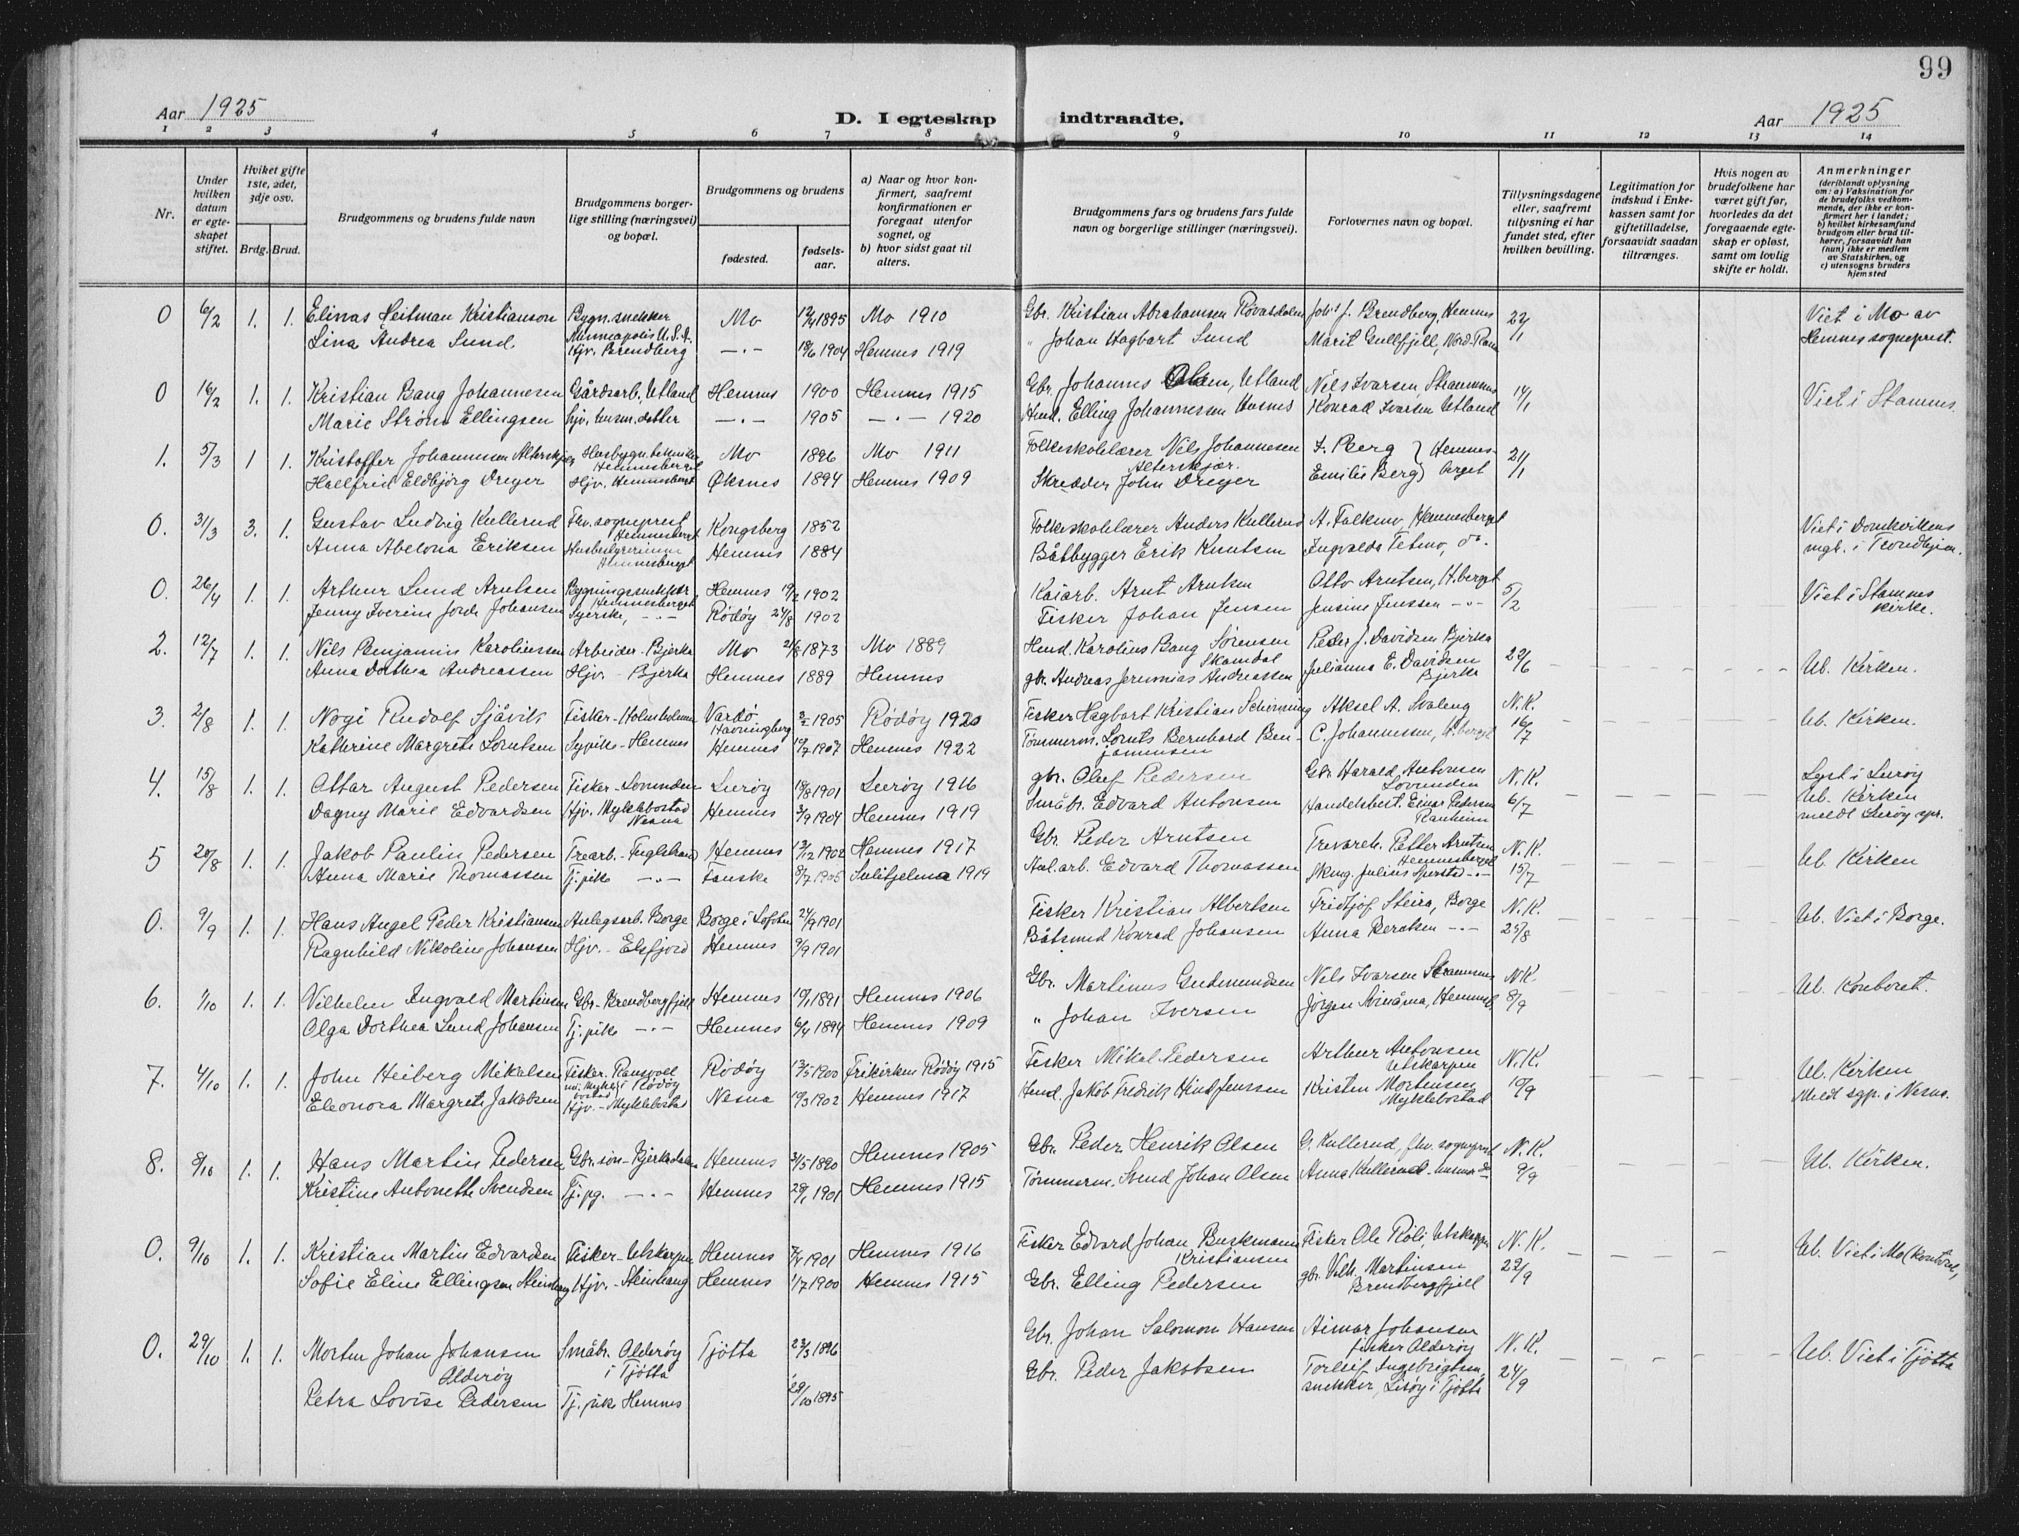 99
Aar 1925 D. I egteskap indtraadte. Aar 1925
1 2 3 4 5 6 7 8 9 10 11 12 13 14
Nr.
Under hvilken datum er egteskapet stiftet.
Hviket gifte 1ste, 2det, 3dje osv.
Brdg. Brud.
Brudgommens og brudens fulde navn
Brudgommens borgerlige stilling (næringsvei) og bopæl.
Brudgommens og brudens
fødested.
fødselsaar.
a) Naar og hvor konfirmert, saafremt konfirmationen er foregaat utenfor sognet, og
b) hvor sidst gaat til alters.
Brudgommens fars og brudens fars fulde navn og borgerlige stillinger (næringsvei).
Forlovernes navn og bopæl.
Tillysningsdagene eller, saafremt tillysning ei har fundet sted, efter hvilken bevilling.
Legitimation for indskud i Enkekassen samt for giftetilladelse, forsaavidt saadan tiltrænges.
Hvis nogen av brudefolkene har været gift før, hvorledes da det foregaaende egteskap er opløst, samt om lovlig skifte er holdt.
Anmerkninger (deriblandt oplysning om: a) Vaksination for de brudefolks vedkommende, der ikke er konfirmert her i landet; b) hvilket kirkesamfund brudgom eller brud tilhører, forsaavidt han (hun) ikke er medlem av Statskirken, og c) utensogns bruders hjemsted
0 6/2 1. 1. Elinas Heitman Kristianson Bygn.snekker Minneapolis U.S.A. Mo 1895 Mo 1910 Gbr. Kristian Abrahamsen Røvatsdalen Joh's J. Brendberg, Hemnes 22/1 Viet i Mo av
Lina Andrea Lund Hjv. Brendberg —.— 1904 Hemnes 1919 " Johan Hagbart Lund Marit Gullfjell, Nord-Rana Hemnes sogneprest.
0 16/2 1. 1. Kristian Bang Johannesen Gårdsarb. Utland Hemnes 1900 Hemnes 1915 Gbr. Johannes Olsen, Utland Nils Ivarsen, Straumnes 14/1 Viet i Stamnes.
Marie Strøm Ellingsen —.— 1905 —.— 1920 Elling Johannessen Konrad Ivarsen Utland
1. 5/3 1 1. Kristoffer Johannesen Alterskjær Husbygn.tekniker Hemnesberget Mo 1896 Mo 1911 Folkeskolelærer Nils Johannesen Alterskjær. F. Berg } Hemnes- 21/1
Hallfrid Eldbjørg Dreyer Hjv. Hemnesberget Øksnes 1894 Hemnes 1909 Skrædder John Dreyer Emilie Berg berget
0. 31/3 3. 1. Gustav Ludvig Kullerud Fhv. sogneprest Hemnesberget Kongsberg 1852 Folkeskolelærer Anders Kullerud A. Falkmo, Hemnesberget Viet i Domkirkens
Anna Abelona Eriksen Husbestyrerinne Hemnesberget Hemnes 1884 Båtbygger Erik Knutsen Ingvalda Tetmo, do. mgh. i Trondhjem.
0. 26/4 1. 1. Arthur Lund Arntsen Bygningssnekker Hemnesberget Hemnes 1902 Kaiarb. Arnt Arntsen Otto Arntsen, H.berget 5/2 Viet i Stamnes
Jenny Iverine Jorde Johansen Syerske, —.— Rødøy 24/8 1902 Fisker Johan Jensen Jensine Jenssen —.— kirke.
2. 12/7 1. 1. Nils Benjamin Karoliussen Arbeider - Bjerka Mo 1873 Mo 1889 Karolius Bang Sørensen Skamdal Peder J. Davidsen Bjerka 22/6 Ub. Kirken.
Anna Dorthea Andreassen Hjv. - Bjerka Hemnes 1889 Hemnes gbr. Andreas Jeremias Andreassen Julianna E. Davidsen Bjerka
3. 2/8 1. 1. Nogi Rudolf Sjåvik Fisker - Holmholmen Vardø Havningberg 1905 Rødøy 1920 Fisker Hagbart Kristian Schinning Aksel A. Svaleng N.K. Ub. Kirken.
Kathrine Margrete Lorntsen Sypike - Hemnes Hemnes 1907 Hemnes 1922 Tømmerm. Lornts Bernhard Benjaminsen C. Johannessen, H.berget 16/7
4. 15/8 1. 1. Ottar August Pedersen Fisker - Lovunden Lurøy 19/8 1901 Lurøy 1916 gbr. Oluf Pedersen Gbr. Harald Antonsen Lovunden N.K. Lyst i Lurøy
Dagny Marie Edvardsen Hjv. Myklebostad Nesna Hemnes 3/9 1904 Hemnes 1919 Småbr. Edvard Antonsen Handelsbest. Einar Pedersen Ranheim 6/7 Ub. Kirken meldt Lurøy spr.
5 20/8 1. 1. Jakob Paulin Pedersen Trearb. - Fuglstrand Hemnes 1902 Hemnes 1917 Gbr. Peder Arntsen Trevareh. Petter Arntsen Hemnesberget N.K. Ub. Kirken
Anna Marie Thomassen Tj.pike —.— Fauske 8/7 1905 Sulitjelma 1919 Anl.arb. Edvard Thomassen Julius Sjersted —.— 15/7
0. 9/9 1. 1. Hans Angel Peder Kristiansen Anlegsarb. Borge Borge i Lofoten 24/9 1901 Fisker Kristian Albertsen Fridtjof Steira, Borge N.K. Ub. Viet i Borge.
Ragnhild Nikoline Johansen Hjv. - Elsfjord Hemnes 9/9 1901 Båtsmd Konrad Johansen Anna Berntsen —.— 25/8
6. 1/10 1. 1. Vilhelm Ingvald Martinsen Gbr. - Brendbergfjell Hemnes 1891 Hemnes 1906 Gbr. Martinus Gudemundsen Nils Ivarsen Straumnes N.K. Ub. Kontoret.
Olga Dorthea Lund Johansen Tj.pike —.— Hemnes 6/4 1894 Hemnes 1909 " Johan Iversen Jørgen Svinåma, Hemnesb. 8/9
7. 4/10 1. 1. John Heiberg Mikalsen Fisker. Ransvol nu Myklebostad i Rødøy Rødøy 13/5 1900 Frikirken Rødøy 1915 Fisker Mikal Pedersen Arthur Antonsen Utskarpen N.K. Ub. Kirken
Eleonora Margrete Jakobsen Hjv. - Myklebostad Nesna 19/3 1902 Hemnes 1917 Jakob Fredrik Hind Jenssen Kristen Mortensen Myklebostad 19/9 Meld sgp. i Nesna.
8. 8/10 1. 1. Hans Martin Pedersen Gbr.søn - Bjerkadalen Hemnes 3/5 1890 Hemnes 1905 Gbr. Peder Henrik Olsen G. Kullerud, fhv. sogneprest N.K. Ub. Kirken.
Kristine Antonette Svendsen Tj.pg. —.— Hemnes 1901 Hemnes 1915 Tømmerm. Svend Johan Olsen Anna Kullerud - 9/9
0. 9/10 1. 1. Kristian Martin Edvardsen Fisker - Utskarpen Hemnes 1901 Hemnes 1916 Fisker Edvard Johan Buskmann Kristiansen Fisker Ole Røli, Utskarpen N.K. Ub. Viet i Mo (kontoret)
Sofie Eline Ellingsen Steinhaug Hjv. - Steinhaug Hemnes 1/7 1900 Hemnes 1915 Gbr. Elling Pedersen gbr. Vilh. Martinsen Brendbergfjell 22/9
0. 29/10 1. 1. Morten Johan Johansen Alderøy Småbr. Alderøy i Tjøtta Tjøtta 23/3 1896 Gbr. Johan Salomon Hansen Aimar Johansen fisker Alderøy N.K. Ub. Viet i Tjøtta
Petra Lovise Pedersen Tj.pike Hemnes 29/10 1895 Gbr. Peder Jakobsen Torleif Ingebrigtsen, snekker, Lisøy i Tjøtta 24/9